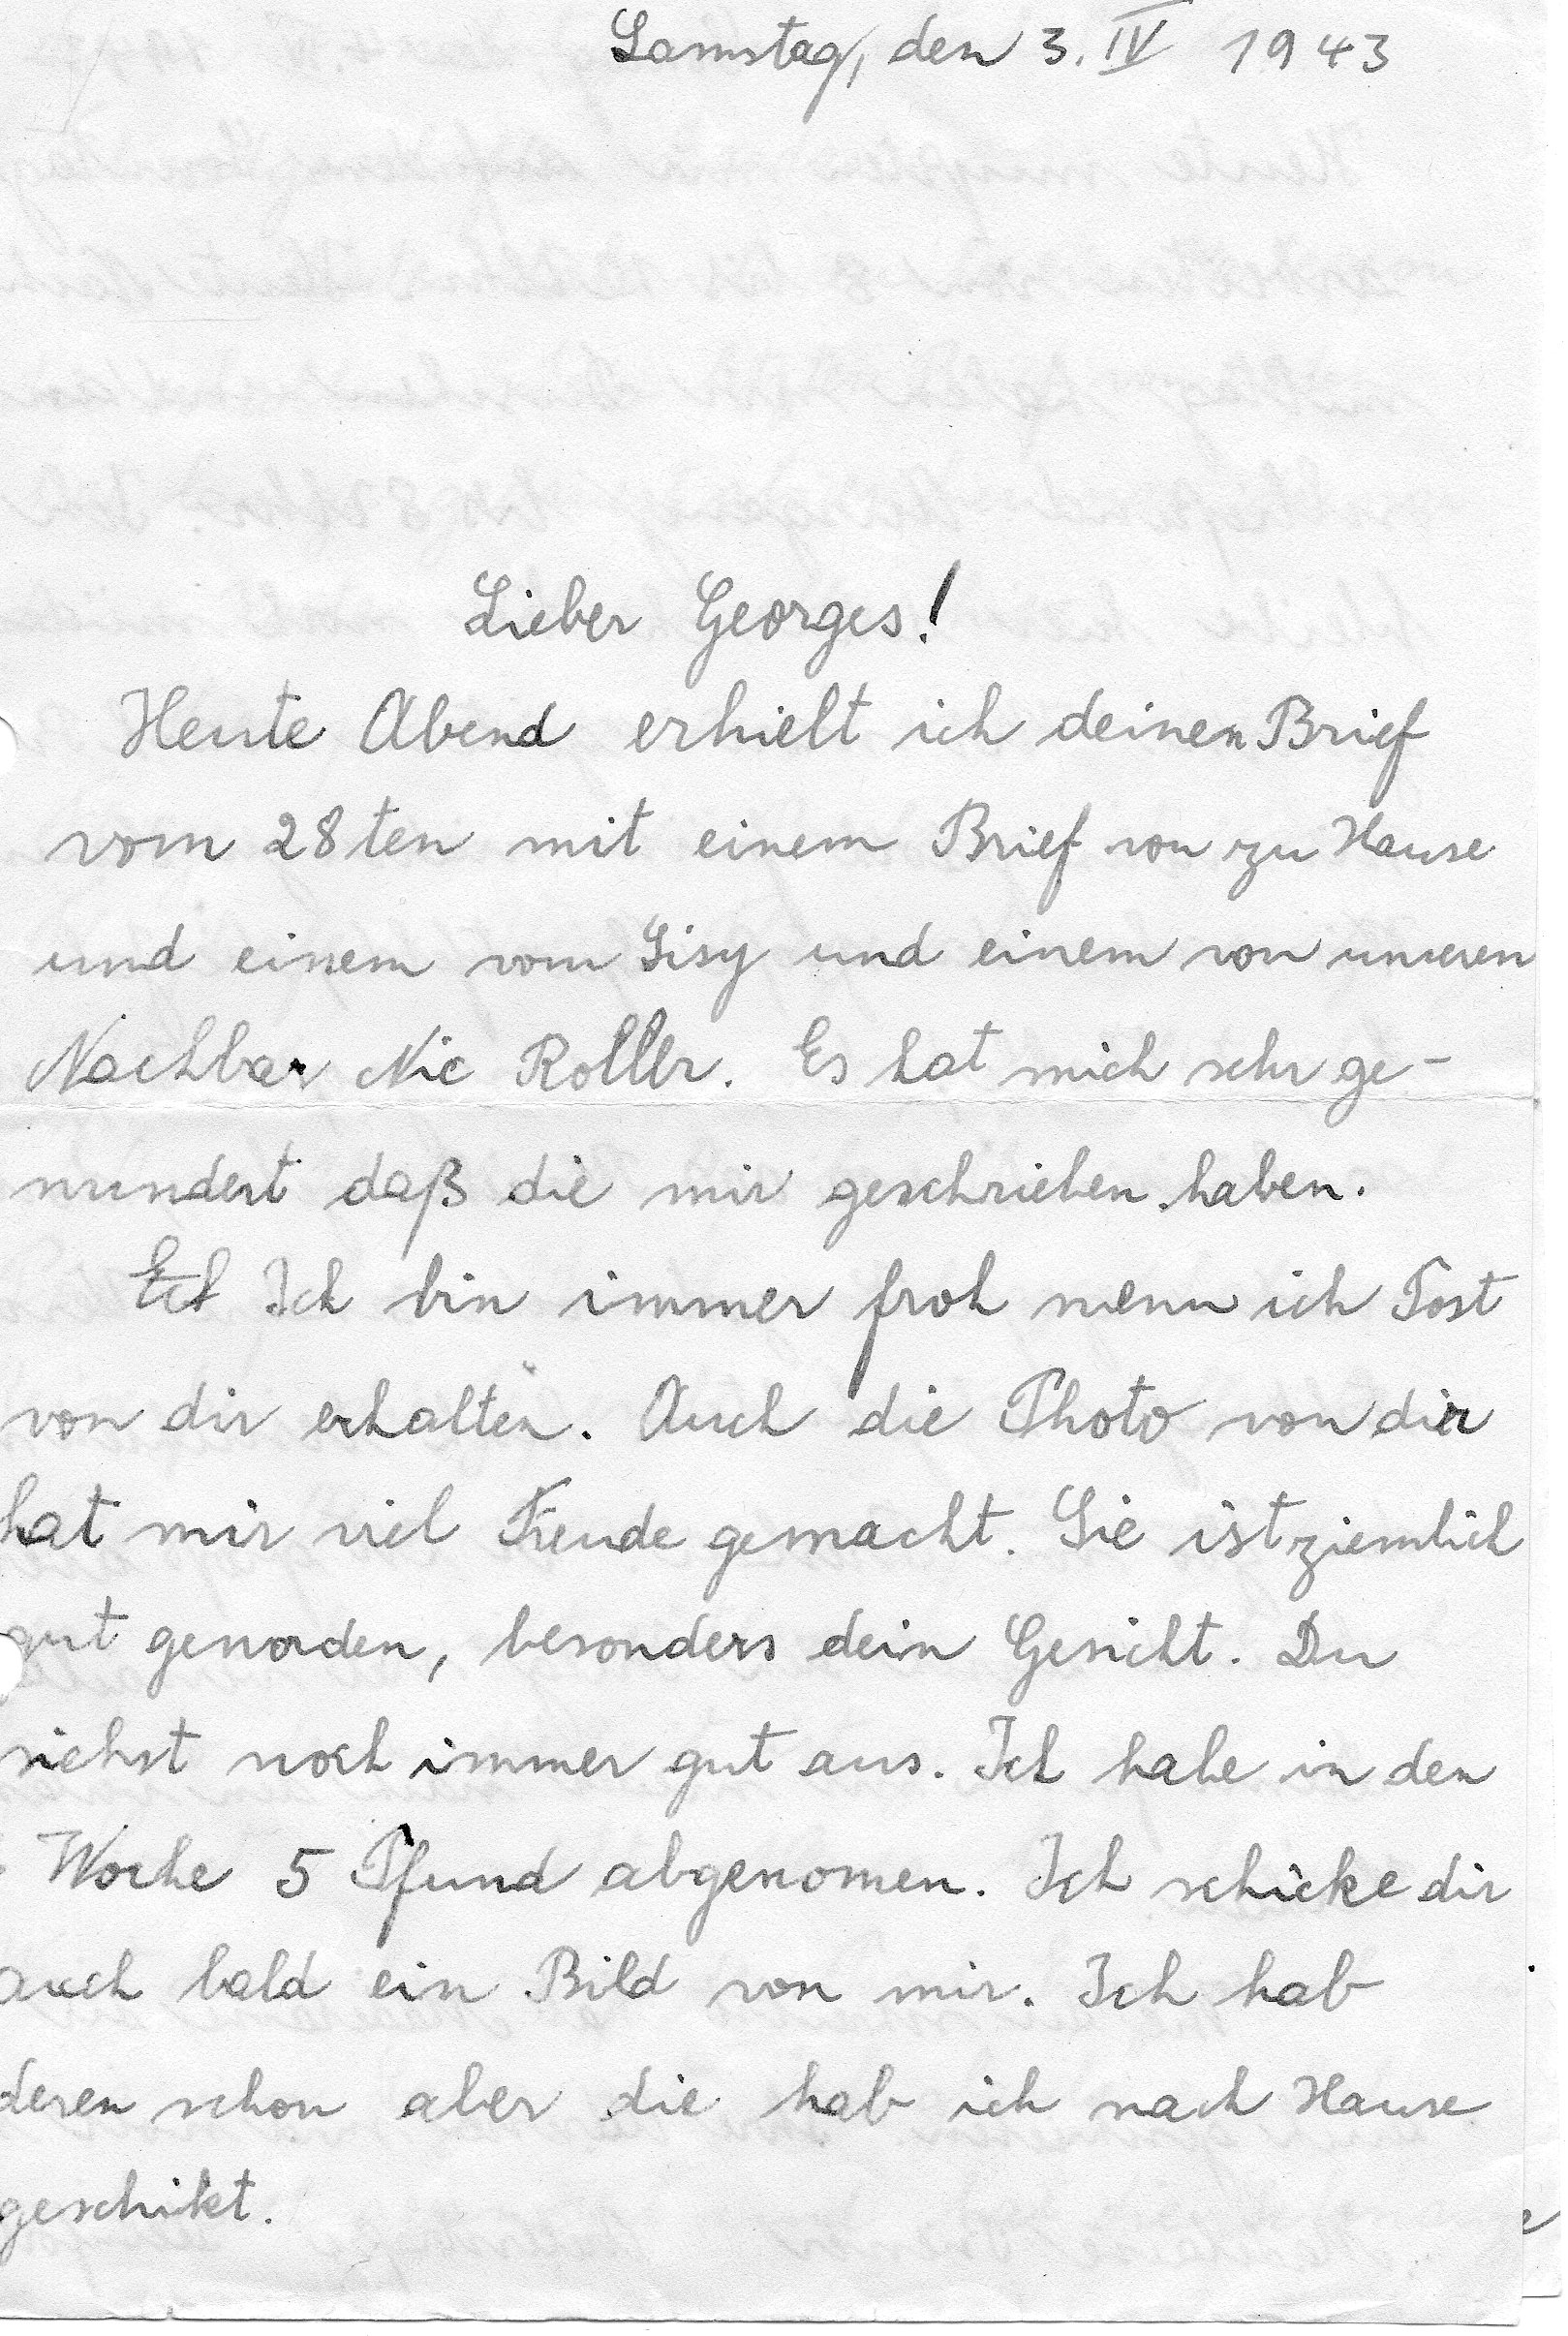 Samstag, den 3. IV 1943
Lieber Georges!
Heute Abend erhielt ich deinen Brief
vom 28ten mit einem Brief von zu Hause
und einem vom Sisy und einem von unseren
Nachbar Nic Roller. Es hat mich sehr ge-
wundert daß die mir geschrieben haben.
Ich bin immer froh wenn ich Post
von dir erhalten. Auch die Photo von dir
hat mir viel Freude gemacht. Sie ist ziemlich
gut geworden, besonders dein Gesicht. Du
siehst noch immer gut aus. Ich habe in den
Woche 5 Pfund abgenomen. Ich schicke dir
auch bald ein Bild von mir. Ich hab
deren schon aber die hab ich nach Hause
geschikt.